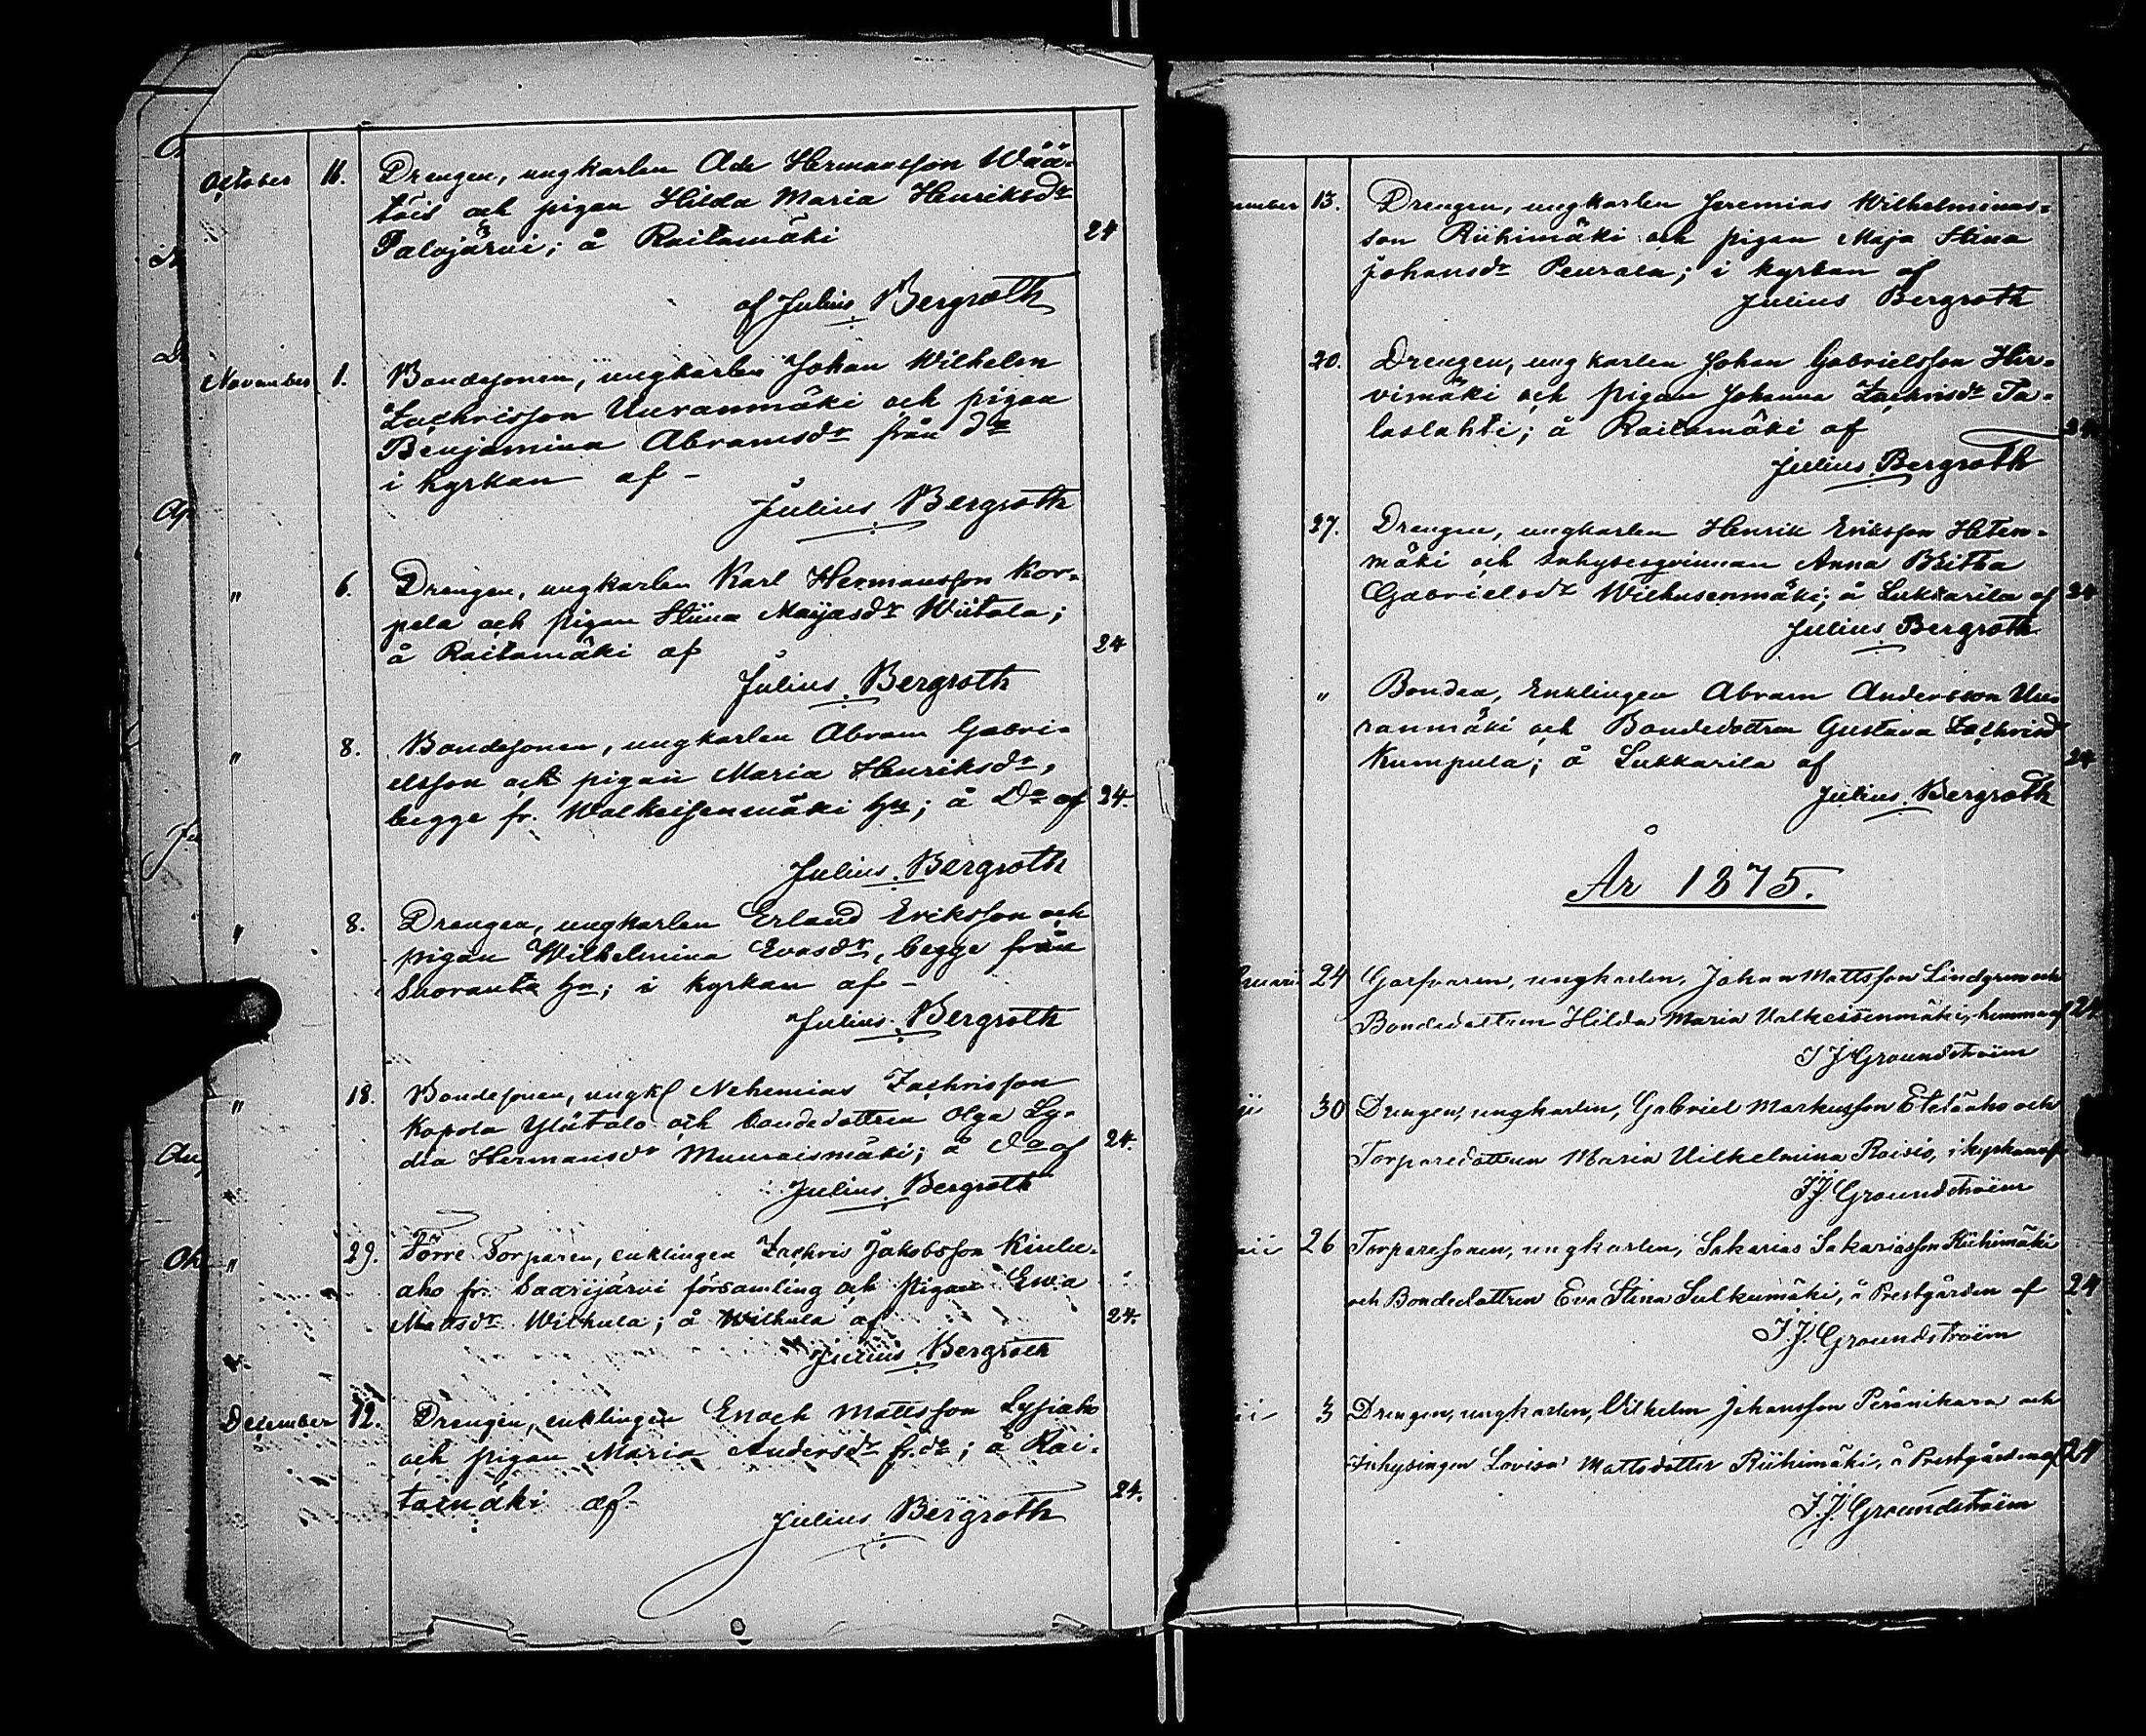 October 11. Drengen, ungkarlen Hermansson Wää-
töis och pigan Hilda Maria Henriksdr
Talvjärvi; å Raitamäki 24
af Julius Bergroth
November 1. Bondesonen, ungkarlen Johan Wilhelm
Zachrisson Uuranmäki och pigan
Benjamina Abramsdr från do
i kyrkan af -
Julius Bergroth
" 6. Drengen, ungkarlen Karl Hermansson Kor-
pela och pigan Stiina Mayasdr Wiitala;
å Raitamäki af 24
Julius Bergroth
" 8. Bondesonen, ungkarlen Abram Gabri-
elsson och pigan Maria Henriksdr,
begge fr. Walkeisenmäki hn; å Do af 24.
Julius Bergroth
" 8. Drengen, ungkarlen Erland Eriksson och
pigan Wilhelmina Evasdr, begge från
Suoranta hn; i kyrkan af -
Julius Bergroth
" 18. Bondesonen, ungkl Nehemias Zachrisson
Kapola Ylätalo och bondedottren Olga Ly-
dia Hermansdr Muuraismäki; å do af 24.
Julius Bergroth
" 29. Förre Torparen, enklingen Zachris Jakobsson
aho fr. Saarijärvi församling och pigan Ewa
Mattsdr Wilhula; å Wilhula af 24.
Julius Bergroth
December 12. Drengen, enklingen Enoch Mattsson Syjäaho
och pigan Maria Andersdr fr. do; å Rai-
tamäki af 24.
Julius Bergroth
13. Drengen, ungkarlen Jeremias Wilhelminas-
son Riihimäki och pigan Maja Stina
Johansdr Peurala; i kyrkan af
Julius Bergroth
20. Drengen, ungkarlen Johan Gabrielsson Hir-
vimäki och pigan Johanna Zachrisdr Ta-
laslahti; å Raitamäki af 24
Julius Bergroth
27. Drengen, ungkarlen Henrik Eriksson Heten-
mäki och inhysesqvinnan Anna Britha
Gabrielsdr Wilhusenmäki; å Sukkarila af 24
Julius Bergroth
" Bonden, Enklingen Abram Andersson Uu-
ranmäki och Bondedottren Gustava Zachrisd
Kumpula; å Sukkarila af 24
Julius Bergroth
År 1875.
24 Garfvaren, ungkarlen, Johan Mattsson Lindgren och
Bondedottren Hilda Maria Valkeisenmäki, hemma af 24
I J Groundstroëm
30 Drengen, ungkarlen, Gabriel Markusson Eteläaho och
Torparedottren Maria Vilhelmina Raisis, i kyrkan af
I J Groundstroëm
26 Torparesonen, ungkarlen, Sakarias Sakariasson Riihimäki
och Bondedottren Eva Stina Sulkumäki, å Prestgården af 24
I. J. Groundstroëm
3 Drengen, ungkarlen, Vilhelm Johansson Peränikara och
Inhysingen Lovisa Mattsdotter Riihimäki, å Prestgården af 24
I. J. Groundstroëm